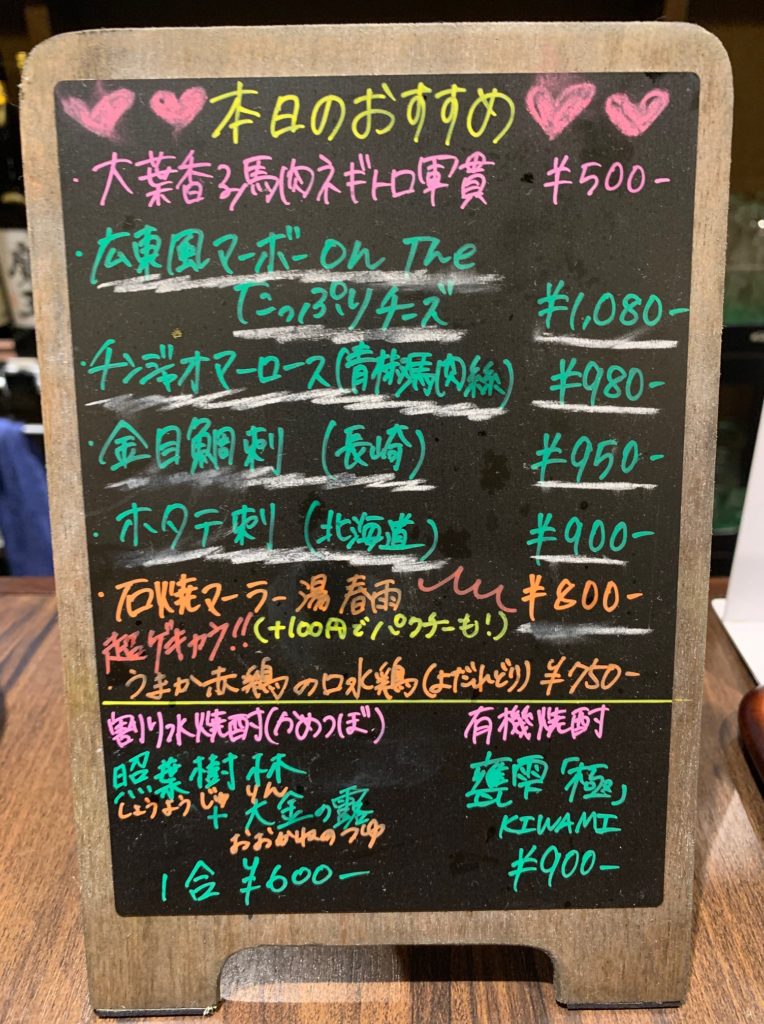 本日のおすすめ
・大葉香る馬肉ネギトロ軍貫 ¥500-
・広東風マーボー on The
たっぷりチーズ ¥1,080-
・チンジャオマーロース(青椒馬肉絲) ¥980-
・金目鯛刺 (長崎) ¥950-
・ホタテ刺 (北海道) ¥900-
・石焼マーラー湯春雨 ¥800-
超ゲキカラ!! (+100円でパクチーも!)
・うまか赤鶏の口水鶏(よだれどり) ¥750-
割り水焼酎(かめつぼ)
照葉樹林
しょうようじゅ りん
+ 大金の露
おおがねのつゆ
1合 ¥600-
有機焼酎
甕雫「極」
KIWAMI
¥900-